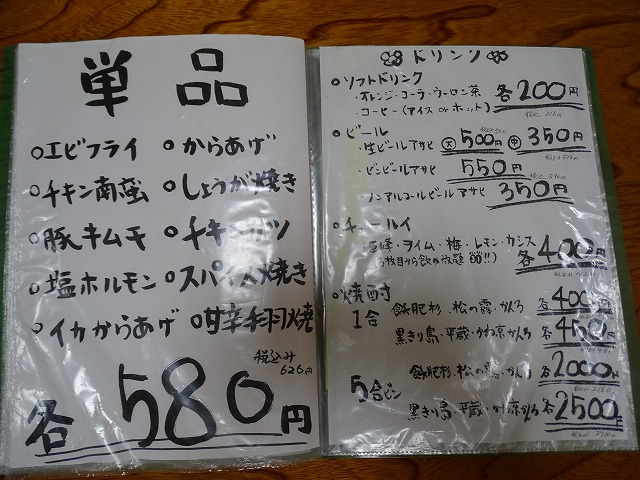 単品
○エビフライ ○からあげ
○チキン南蛮 ○しょうが焼き
○豚キムチ ○チキンカツ
○塩ホルモン ○スパイス焼き
○イカからあげ ○甘辛手羽焼
税込み
626円
各580円
ドリンク
○ソフトドリンク
・オレンジ・コーラ・ウーロン茶 各200円
・コーヒー(アイス or ホット) 税込216円
○ビール
・生ビールアサヒ 大500円 中350円
・ビンビールアサヒ 550円
・ノンアルコールビールアサヒ 350円
○チューハイ
・ライム・梅・レモン・カシス
各400円
○焼酎
1合 飫肥杉・松の露・かんろ 各400円
黒きり島・平蔵・かわ京かんろ 各450円
5合ビン 飫肥杉・松の露・かんろ 各2000円
黒きり島・平蔵・かわ京かんろ 各2500円